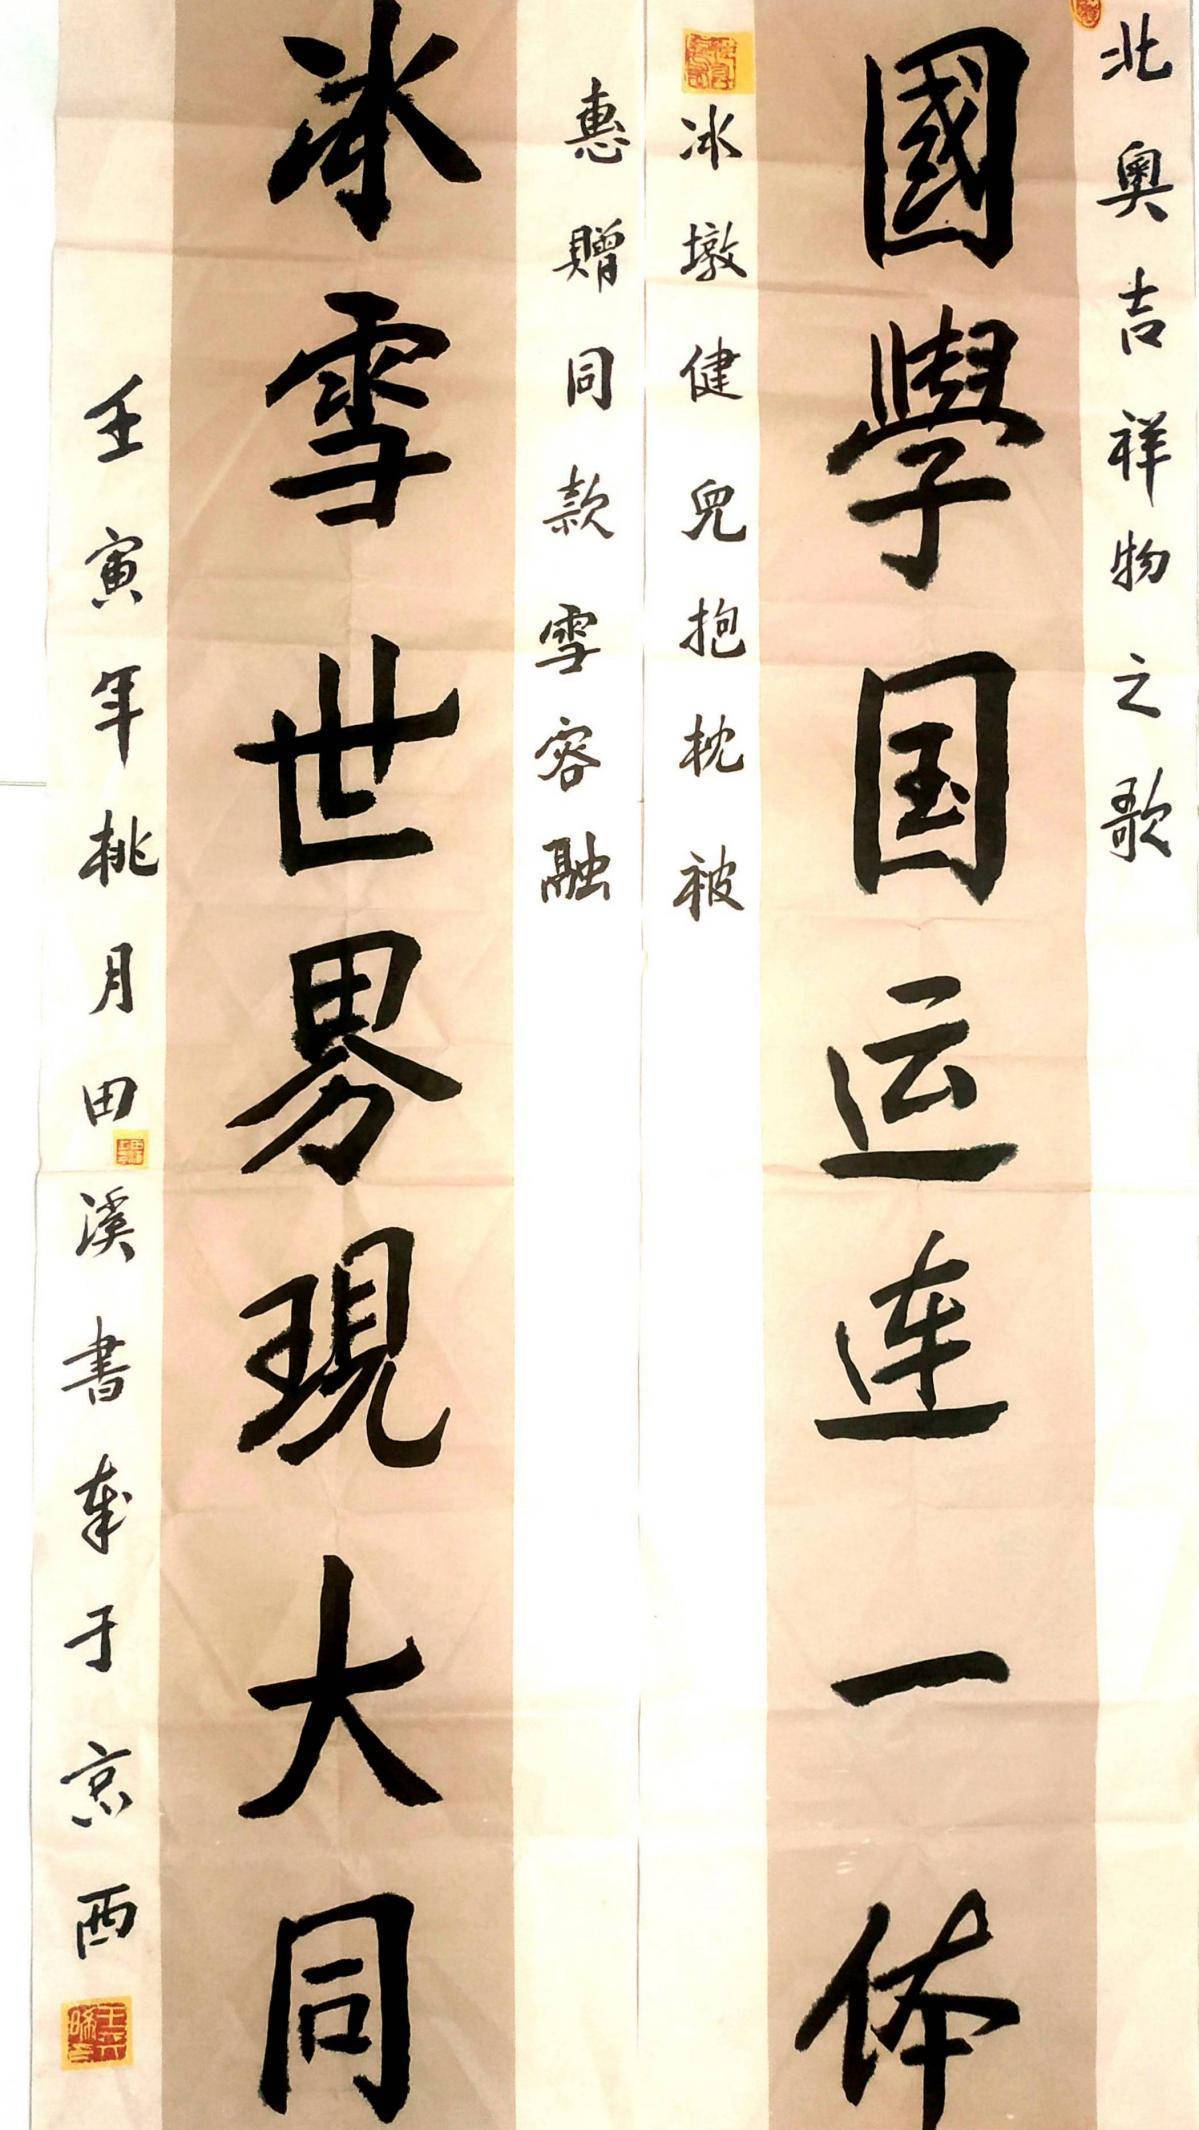 北奥吉祥物之歌
國學国运连一体
冰墩健兒抱枕被
惠赠同款雪容融
冰雪世界現大同
壬寅年桃月田溪書奉于京西